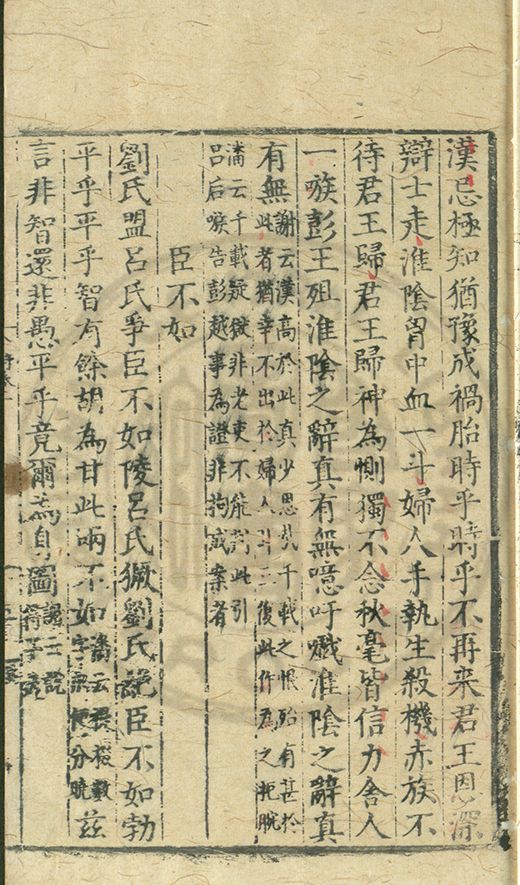 漢忌極知猶豫成禍胎時乎時乎不再来君王恩深
辯士走淮陰胷中血一斗婦人手執生殺機赤族不
待君王歸君王歸神為惻獨不念秋毫皆信力舍人
一嗾彭王殂淮陰之辭真有無噫吁戲淮陰之辭真
有無
謝云漢高於此真少恩哉千載之恨殆有甚於
此者猶幸不出於婦人
後此作為之扼腕
潘云千載疑獄非老吏不能
此引
呂后嗾告彭越事為證非拘成案者
臣不如
劉氏盟呂氏爭臣不如陵呂氏獗劉氏
臣不如勃
平乎平乎智有餘胡為甘此兩不如
潘云
數
字
便分曉
兹
言非智還非愚平乎竟爾為身圖